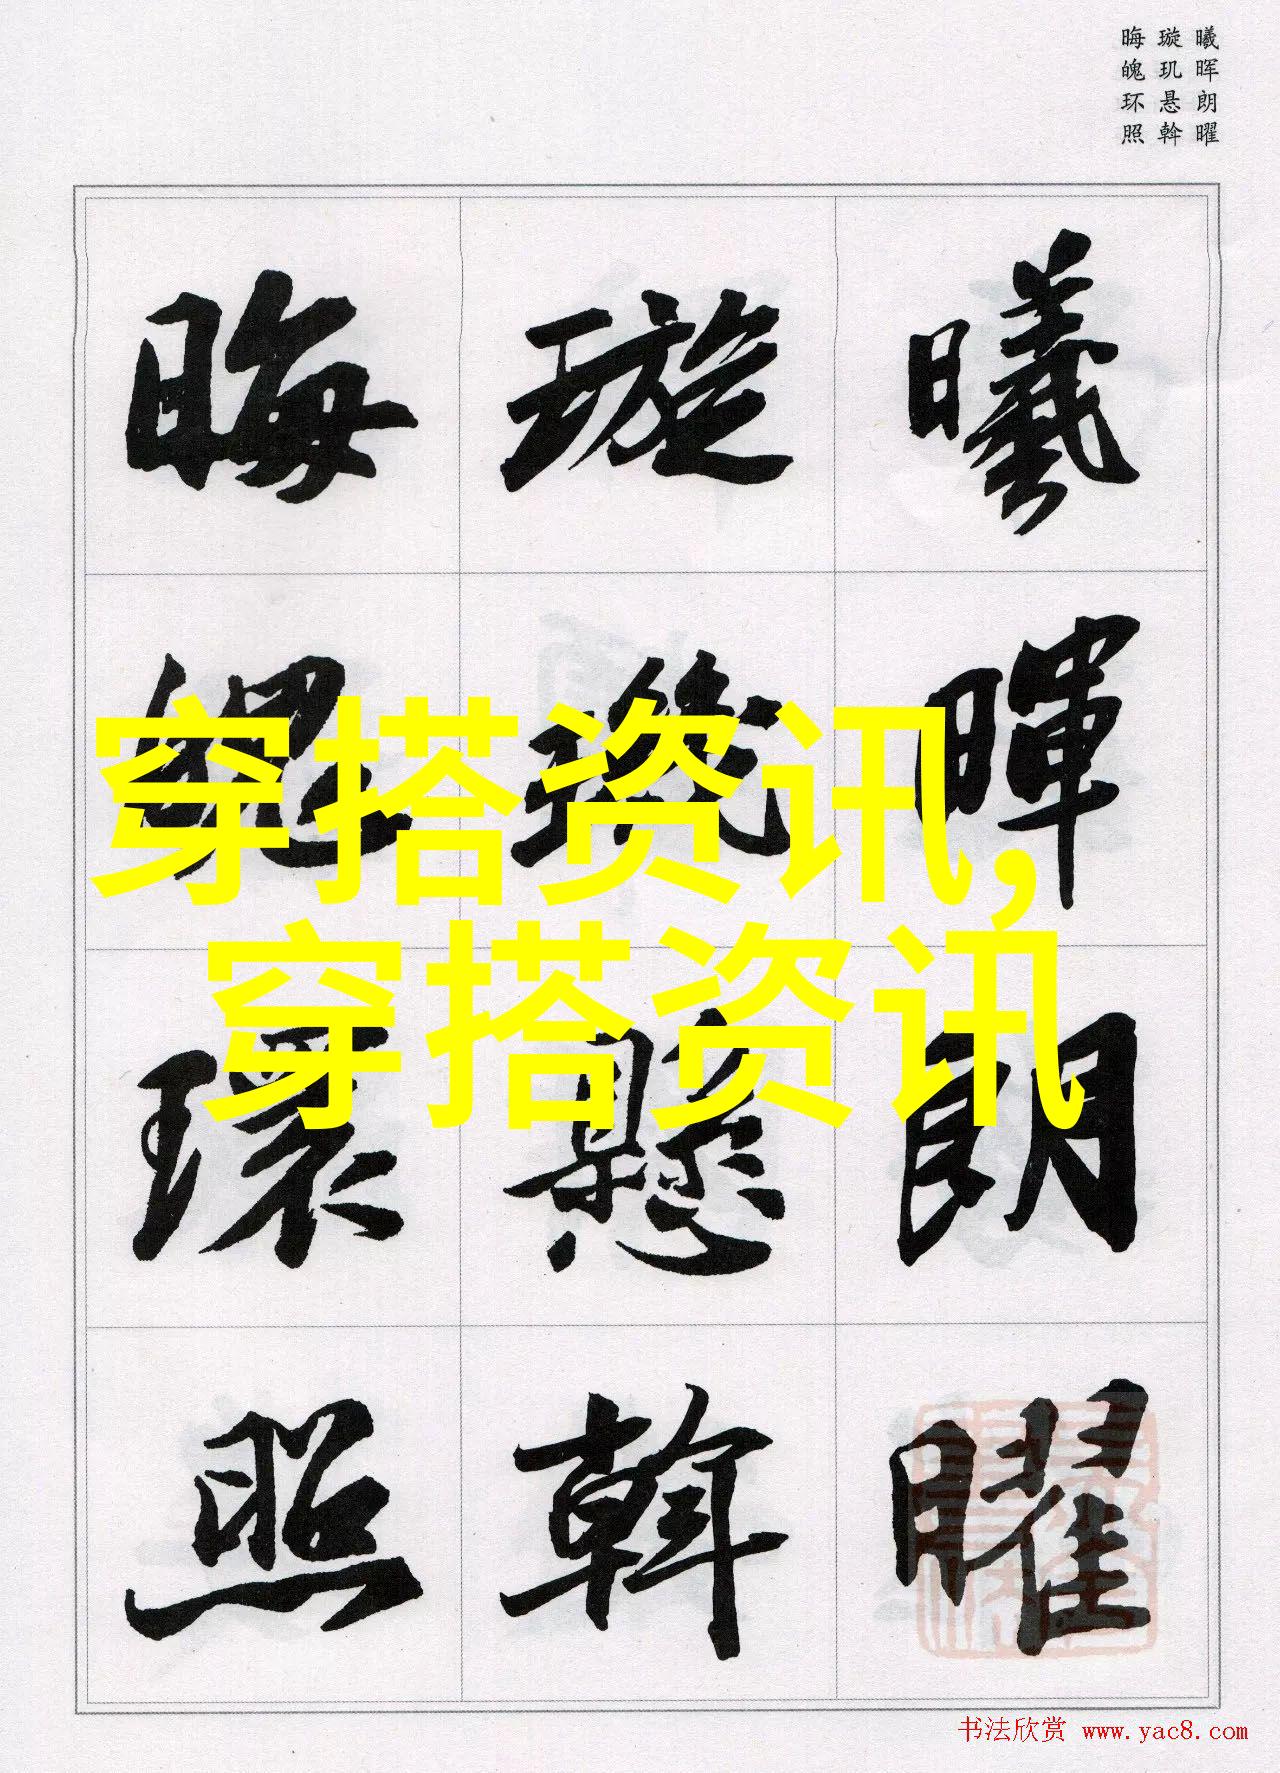 曦晖朗曜
璇玑悬斡
晦魄环照
曦暉朗曜
璇璣懸斡
晦魄環照
穿搭资讯,
穿搭资讯
书法欣赏 www.yac8.com